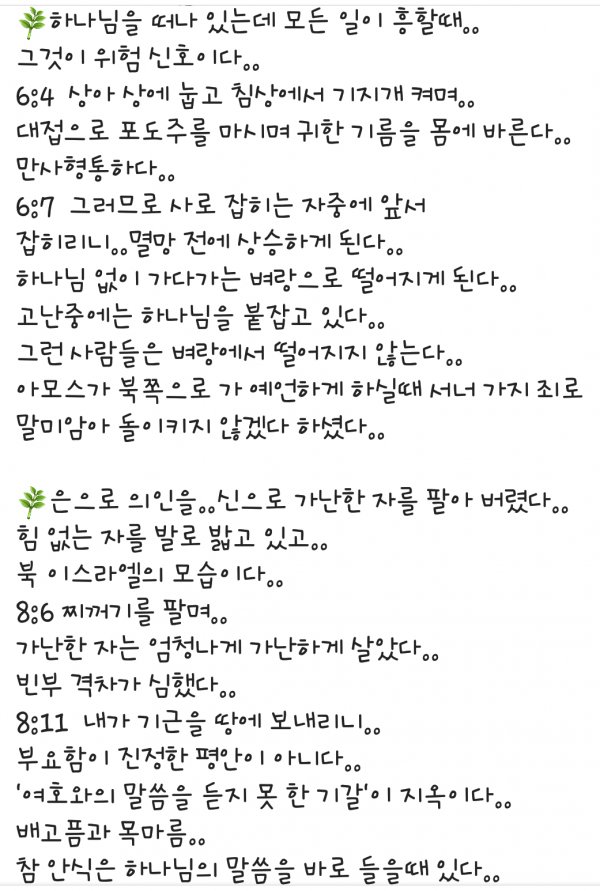 🌿하나님을 떠나 있는데 모든 일이 흥할때..
그것이 위험 신호이다..
6:4 상아 상에 눕고 침상에서 기지개 켜며..
대접으로 포도주를 마시며 귀한 기름을 몸에 바른다..
만사형통하다..
6:7 그러므로 사로 잡히는 자중에 앞서
잡히리니..멸망 전에 상승하게 된다..
하나님 없이 가다가는 벼랑으로 떨어지게 된다..
고난중에는 하나님을 붙잡고 있다..
그런 사람들은 벼랑에서 떨어지지 않는다..
아모스가 북쪽으로 가 예언하게 하실때 서너 가지 죄로
말미암아 돌이키지 않겠다 하셨다..

🌿은으로 의인을..신으로 가난한 자를 팔아 버렸다..
힘 없는 자를 발로 밟고 있고..
북 이스라엘의 모습이다..
8:6 찌꺼기를 팔며..
가난한 자는 엄청나게 가난하게 살았다..
빈부 격차가 심했다..
8:11 내가 기근을 땅에 보내리니..
부요함이 진정한 평안이 아니다..
'여호와의 말씀을 듣지 못 한 기갈'이 지옥이다..
배고픔과 목마름..
참 안식은 하나님의 말씀을 바로 들을때 있다..